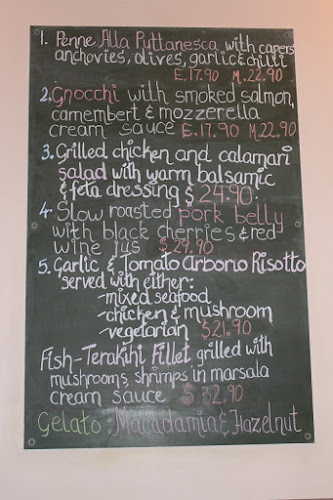 1. Penne Alla Puttanesca with capers
anchovies, olives, garlic & chilli
E. 17.90 M. 22.90
2. Gnocchi with smoked salmon,
camembert & mozzerella
cream sauce E. 17.90 M 22.90
3. Grilled chicken and calamari
salad with warm balsamic
& feta dressing $ 24.90.
4. Slow roasted pork belly
with black cherries & red
wine jus $ 29.90
5. Garlic & Tomato Arborio Risotto
served with either:
-mixed seafood
-chicken & mushroom
-vegetarian $21.90
Fish-Terakihi Fillet grilled with
mushrooms, shrimps in marsala
cream sauce $ 32.90
Gelato: Macadamia & Hazelnut